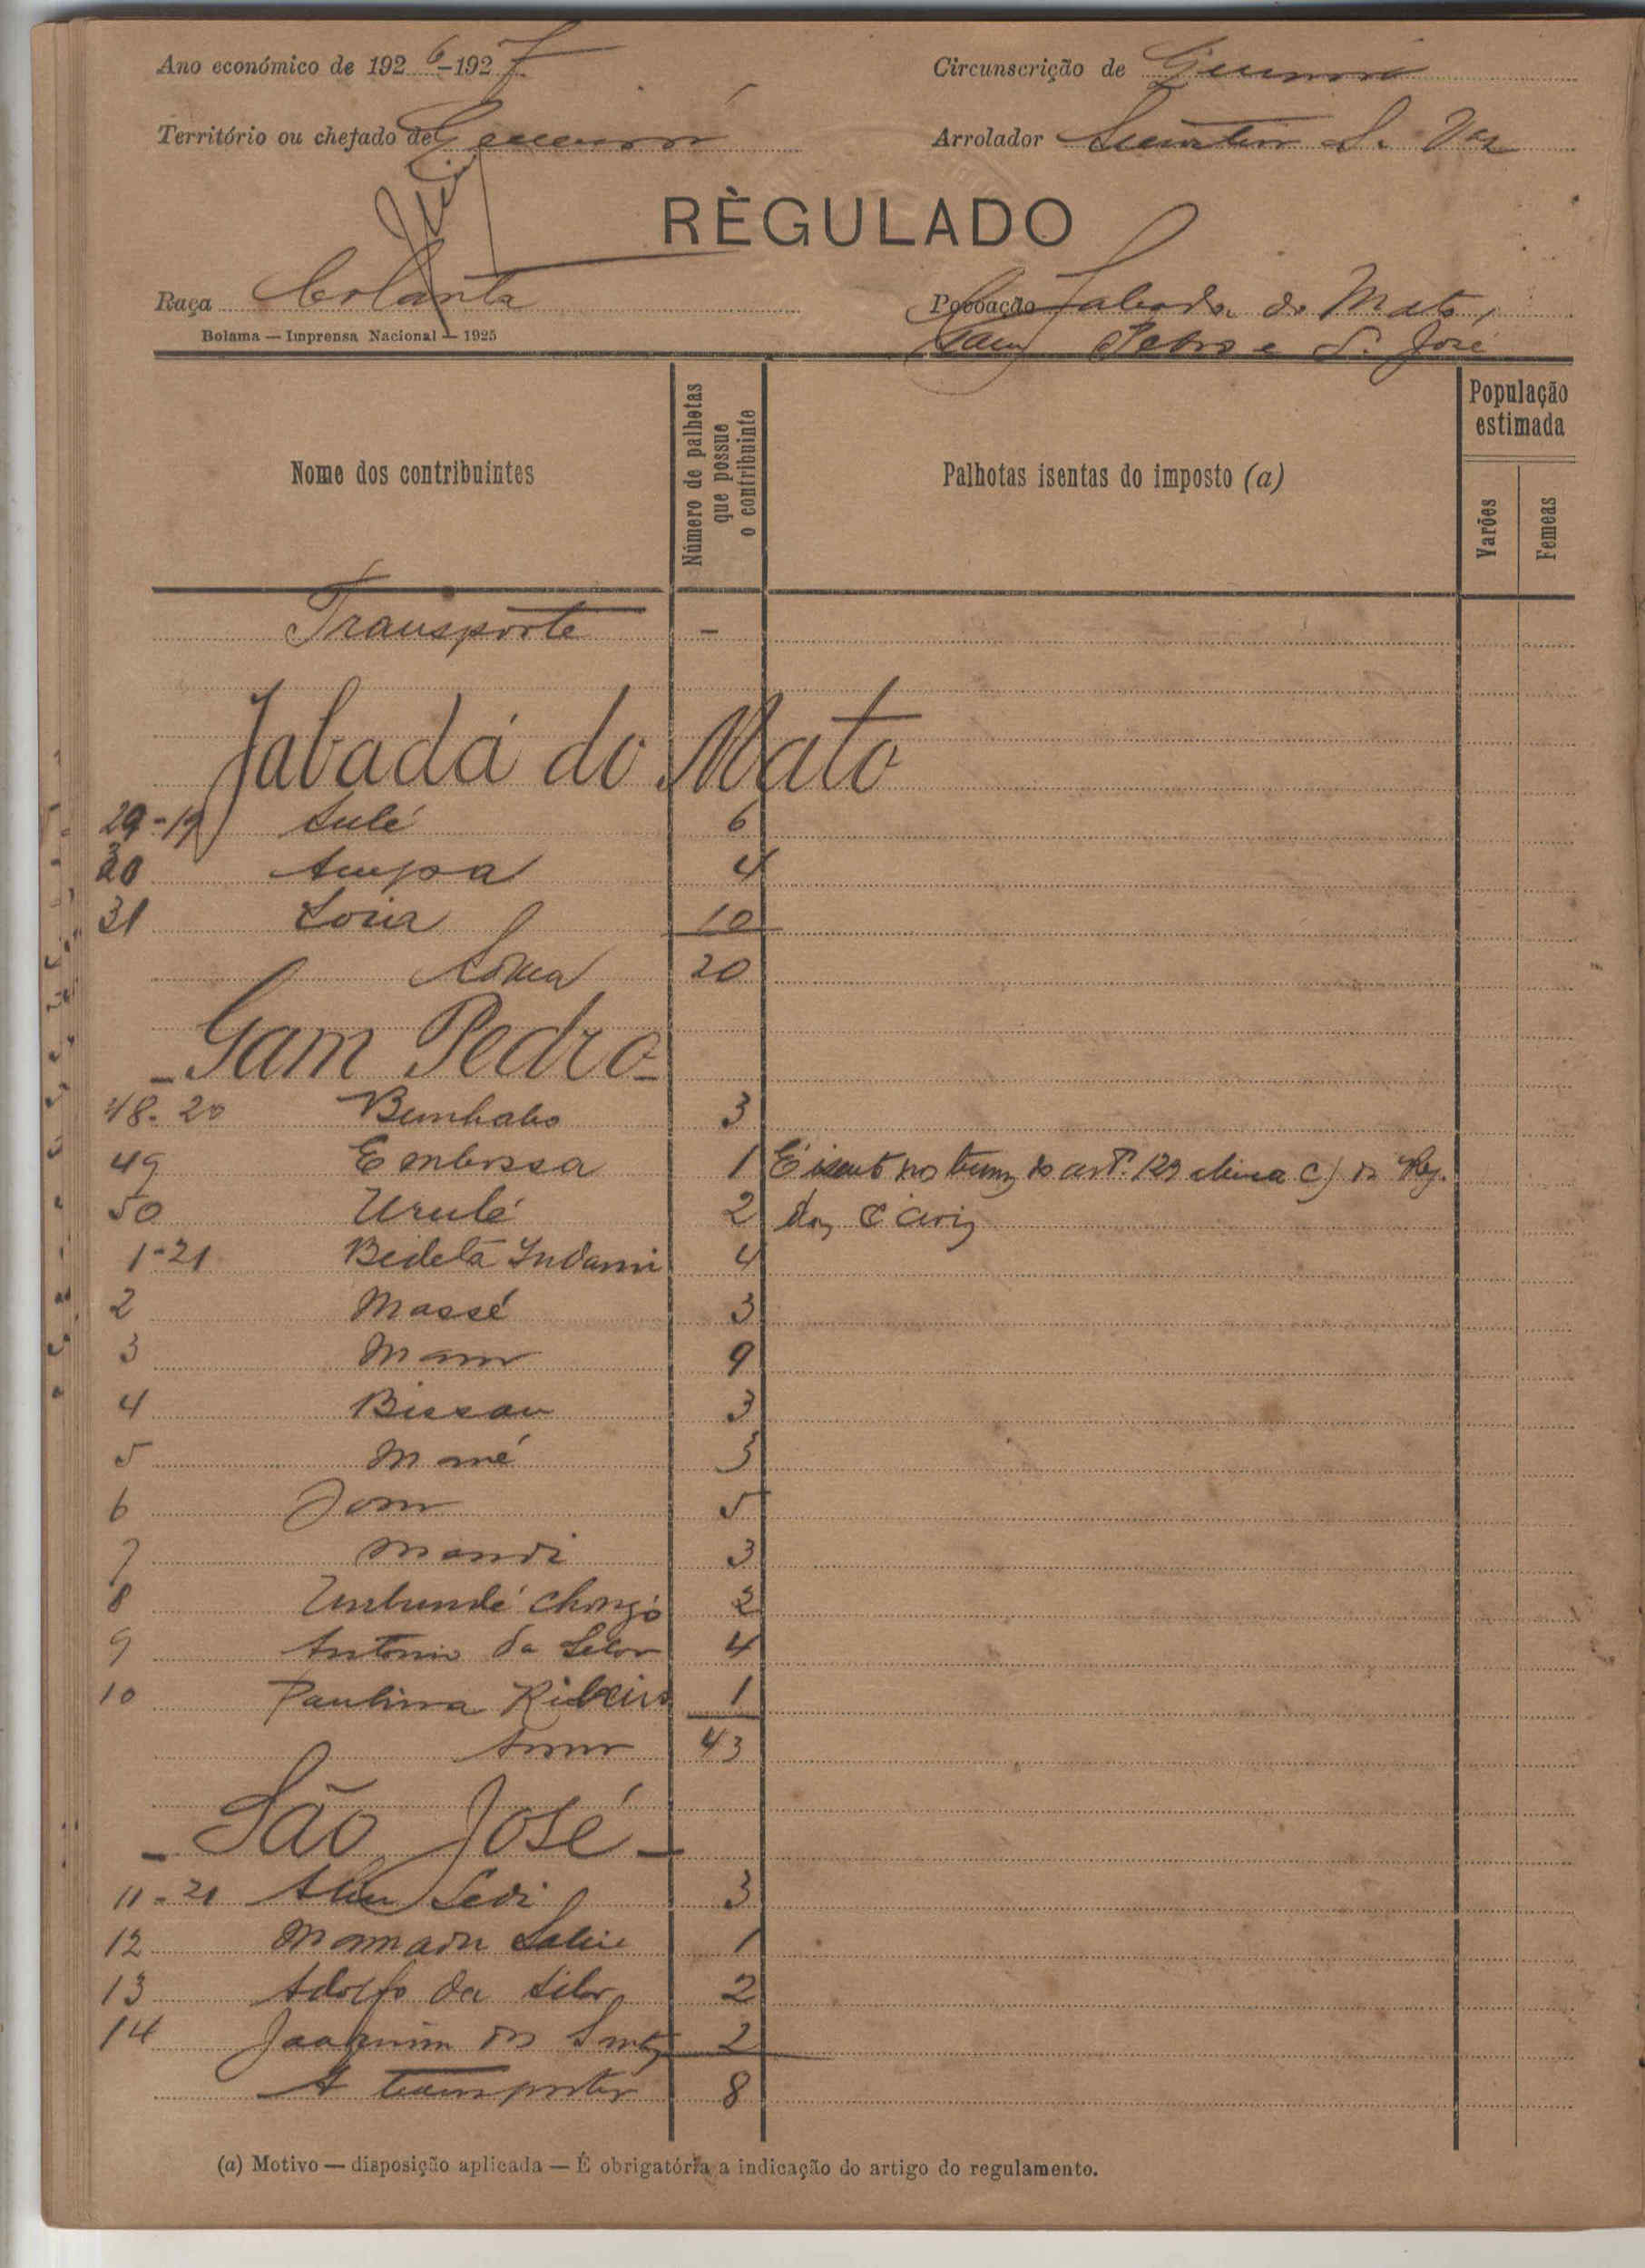 Ano económico de 1926-1927
Circunscrição de
Território ou chefado de
Arrolador S. Vaz
RÈGULADO
Raça
Povoação Jabada do Mato,
Gam Pedro e S. José
Bolama — Imprensa Nacional — 1925
Nome dos contribuintes
Número de palhotas que possue o contribuinte
Palhotas isentas do imposto (a)
População estimada
Varões
Femeas
Transporte -
Jabadá do Mato
29-19 Sulé 6
30 Ampa 4
31 10
Soma 20
- Gam Pedro -
48-20 3
49 1 É isento nos termos do artº. 129 alinea c) do Reg.
50 Urulé 2
1-21 Bedeta Indami 4
2 Massé 3
3 9
4 Bissau 3
5 Mané 3
6 5
7 Mandi 3
8 2
9 Antonio da Silva 4
10 Paulina Ribeiro 1
Soma 43
- São José -
11-21 3
12 Mamadu 1
13 Adolfo da Silva 2
14 Joaquim dos Santos 2
A transportar 8
(a) Motivo — disposição aplicada — É obrigatória a indicação do artigo do regulamento.